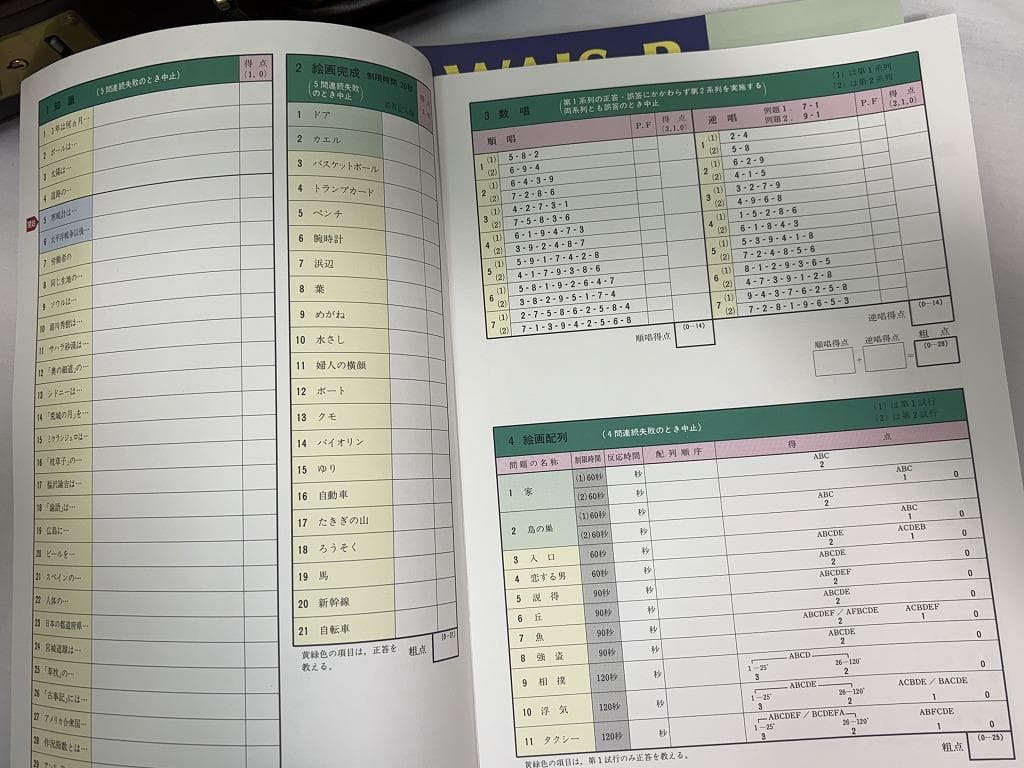 WAIS-R
1 知識 (5問連続失敗のとき中止) 得点 (1, 0)
1 1年は何ヵ月…
2 ボールは…
3 太陽は…
4 道路の…
5 寒暖計は…
6 太平洋戦争以後…
7 労働者の
8 同じ生地の…
9 ソウルは…
10 湯川秀樹は…
11 サハラ砂漠は…
12 「奥の細道」の…
13 シドニーは…
14 「荒城の月」を…
15 ミケランジェロは…
16 「枕草子」の…
17 福沢諭吉は…
18 「論語」は…
19 広島に…
20 ビールを…
21 スペインの…
22 人体の…
23 日本の都道府県…
24 宮城道雄は…
25 「草枕」の…
26 「古事記」には…
27 アメリカ合衆国…
28 作況指数とは…
29
2 絵画完成 制限時間 20秒
(5問連続失敗のとき中止)
1 ドア
2 カエル
3 バスケットボール
4 トランプカード
5 ベンチ
6 腕時計
7 浜辺
8 葉
9 めがね
10 水さし
11 婦人の横顔
12 ボート
13 クモ
14 バイオリン
15 ゆり
16 自動車
17 たきぎの山
18 ろうそく
19 馬
20 新幹線
21 自転車
黄緑色の項目は，正答を教える。 粗点 (0-21)
3 数唱 (第1系列の正答・誤答にかかわらず第2系列を実施する) 両系列とも誤答のとき中止 (1)は第1系列 (2)は第2系列
順唱 P.F 得点 (2,1,0)
1 (1) 5-8-2
(2) 6-9-4
2 (1) 6-4-3-9
(2) 7-2-8-6
3 (1) 4-2-7-3-1
(2) 7-5-8-3-6
4 (1) 6-1-9-4-7-3
(2) 3-9-2-4-8-7
5 (1) 5-9-1-7-4-2-8
(2) 4-1-7-9-3-8-6
6 (1) 5-8-1-9-2-6-4-7
(2) 3-8-2-9-5-1-7-4
7 (1) 2-7-5-8-6-2-5-8-4
(2) 7-1-3-9-4-2-5-6-8
順唱得点 (0-14)
逆唱 例題1. 7-1 例題2. 9-1 P.F 得点 (2,1,0)
1 (1) 2-4
(2) 5-8
2 (1) 6-2-9
(2) 4-1-5
3 (1) 3-2-7-9
(2) 4-9-6-8
4 (1) 1-5-2-8-6
(2) 6-1-8-4-3
5 (1) 5-3-9-4-1-8
(2) 7-2-4-8-5-6
6 (1) 8-1-2-9-3-6-5
(2) 4-7-3-9-1-2-8
7 (1) 9-4-3-7-6-2-5-8
(2) 7-2-8-1-9-6-5-3
逆唱得点 (0-14)
順唱得点 + 逆唱得点 = 粗点 (0-28)
4 絵画配列 (4問連続失敗のとき中止) (1)は第1試行 (2)は第2試行
問題の名称 制限時間 反応時間 配列順序 得点
1 家 (1)60秒 秒 ABC 2
(2)60秒 秒 ABC 1 0
2 鳥の巣 (1)60秒 秒 ABC 2
(2)60秒 秒 ABC 1 0
3 人口 60秒 秒 ABCDE 2 ACDEB 1 0
4 恋する男 60秒 秒 ABCDE 2 0
5 説得 90秒 秒 ABCDEF 2 0
6 丘 90秒 秒 ABCDE 2 0
7 魚 90秒 秒 ABCDEF / AFBCDE 2 ACBDEF 1 0
8 強盗 90秒 秒 ABCDE 2 0
9 相撲 120秒 秒 ABCD 1-25" 3 26-120" 2 0
10 浮気 120秒 秒 ABCDE 1-25" 3 26-120" 2 ACBDE / BACDE 1 0
11 タクシー 120秒 秒 ABCDEF / BCDEFA 1-25" 3 26-120" 2 ABFCDE 1 0
黄緑色の項目は，第1試行のみ正答を教える。 粗点 (0-25)